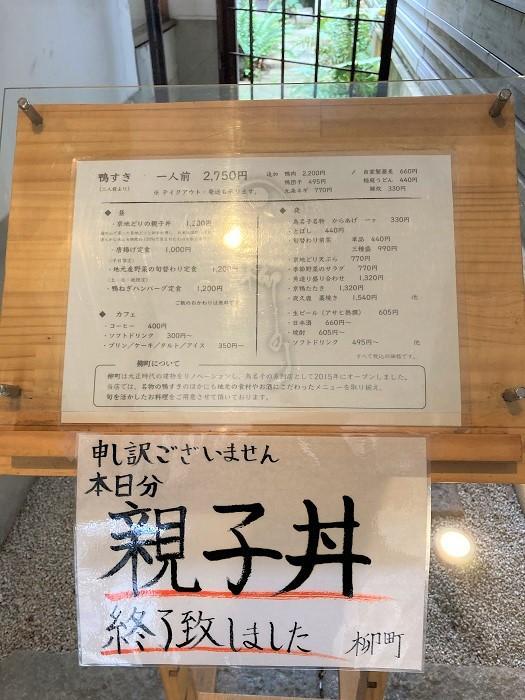 鴨すき 一人前 2,750円
(二人前より)
※ テイクアウト・発送も承ります。
追加 鴨肉 2,200円
鴨団子 495円
九条ネギ 770円
自家製蕎麦 660円
稲庭うどん 440円
雑炊 330円
◆ 昼
・京地どりの親子丼 1,200円
・唐揚げ定食 1,000円
・地元産野菜の旬替わり定食 1,200円
・鴨ねぎハンバーグ定食 1,200円
ご飯のおかわりは無料です
◆ カフェ
・コーヒー 400円
・ソフトドリンク 300円〜
・プリン/ケーキ/タルト/アイス 350円〜
◆ 夜
・鳥名子名物 からあげ 一ヶ 330円
・とばし 440円
・旬替わり前菜 単品 440円
三種盛 990円
・京地どり天ぷら 770円
・季節野菜のサラダ 770円
・魚造り盛り合わせ 1,320円
・京鴨たたき 1,320円
・夜久鹿 藁焼き 1,540円 他
・生ビール(アサヒ熟撰) 605円
・日本酒 660円〜
・焼酎 605円〜
・ソフトドリンク 495円〜 他
すべて税込の価格です。
柳町について
柳町は大正時代の建物をリノベーションし、鳥名子の系列店として2015年にオープンしました。
当店では、名物の鴨すきのほかにも地元の食材やお酒にこだわったメニューを取り揃え、
旬を活かしたお料理をご用意させて頂いております。
申し訳ございません
本日分
親子丼
終了致しました 柳町